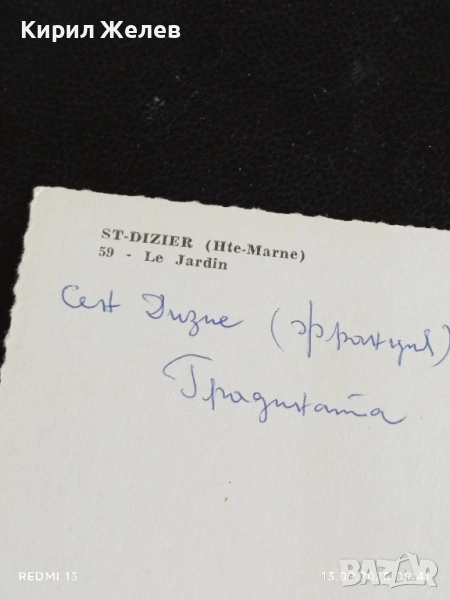 Кирил Желев
ST-DIZIER (Hte-Marne)
59 - Le Jardin
Сен Дизие (Франция)
Градината
REDMI 13
BAZAR